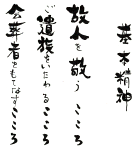 基本精神
故人を敬うこころ
ご遺族をいたわるこころ
会葬者をもてなすこころ